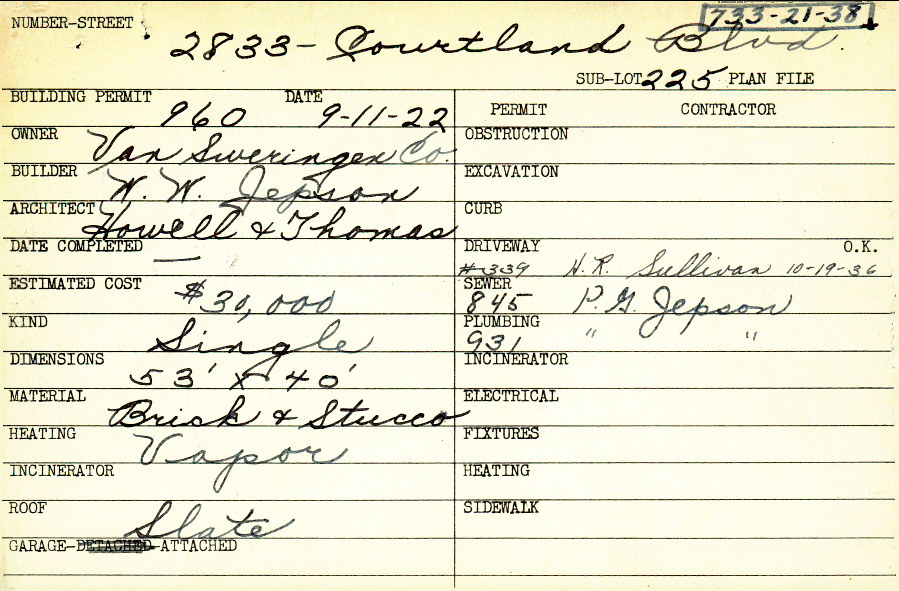 733-21-38
NUMBER-STREET 2833- Courtland Blvd.
SUB-LOT 225 PLAN FILE
BUILDING PERMIT 960 DATE 9-11-22
OWNER Van Sweringen Co.
BUILDER W. W. Jepson
ARCHITECT Howell & Thomas
DATE COMPLETED —
ESTIMATED COST $30,000
KIND Single
DIMENSIONS 53' x 40'
MATERIAL Brick & Stucco
HEATING Vapor
INCINERATOR
ROOF Slate
GARAGE-DETACHED-ATTACHED
PERMIT CONTRACTOR
OBSTRUCTION
EXCAVATION
CURB
DRIVEWAY O.K.
#339 H.R. Sullivan 10-19-36
SEWER
845 P.G. Jepson
PLUMBING
931 " "
INCINERATOR
ELECTRICAL
FIXTURES
HEATING
SIDEWALK